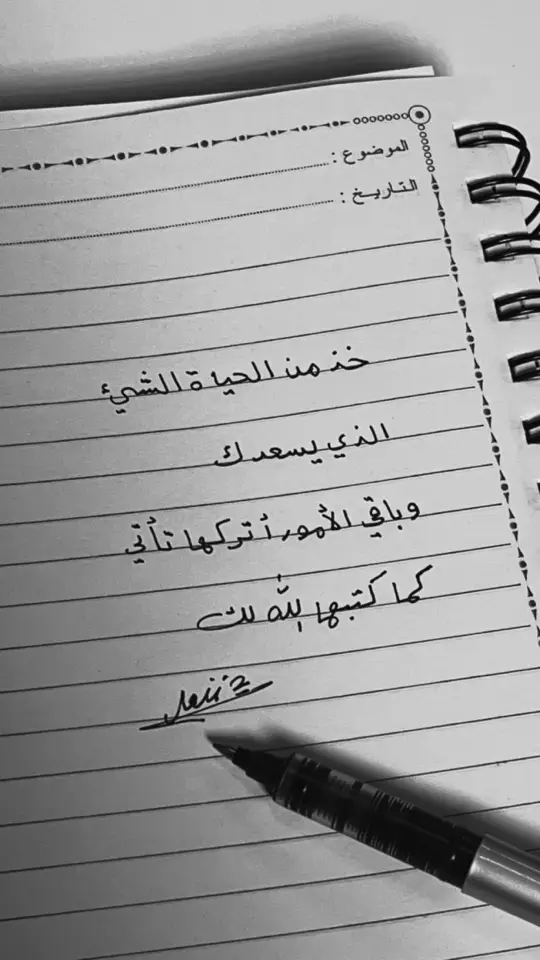 الموضوع :
التاريخ :
خذ من الحياة الشيئ
الذي يسعدك
وباقي الأمور أتركها تأتي
كما كتبها الله لك